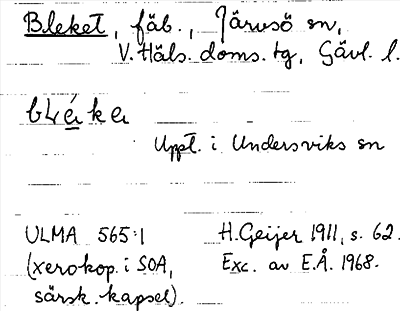 Bleket, fäb., Järvsö sn,
V. Häls. doms.tg, Gävl. l.
Uppt. i Undersviks sn
ULMA 565:1 H. Geijer 1911, s. 62.
(xerokop. i SOA, Exc. av E.Å. 1968.
särsk. kapsel).